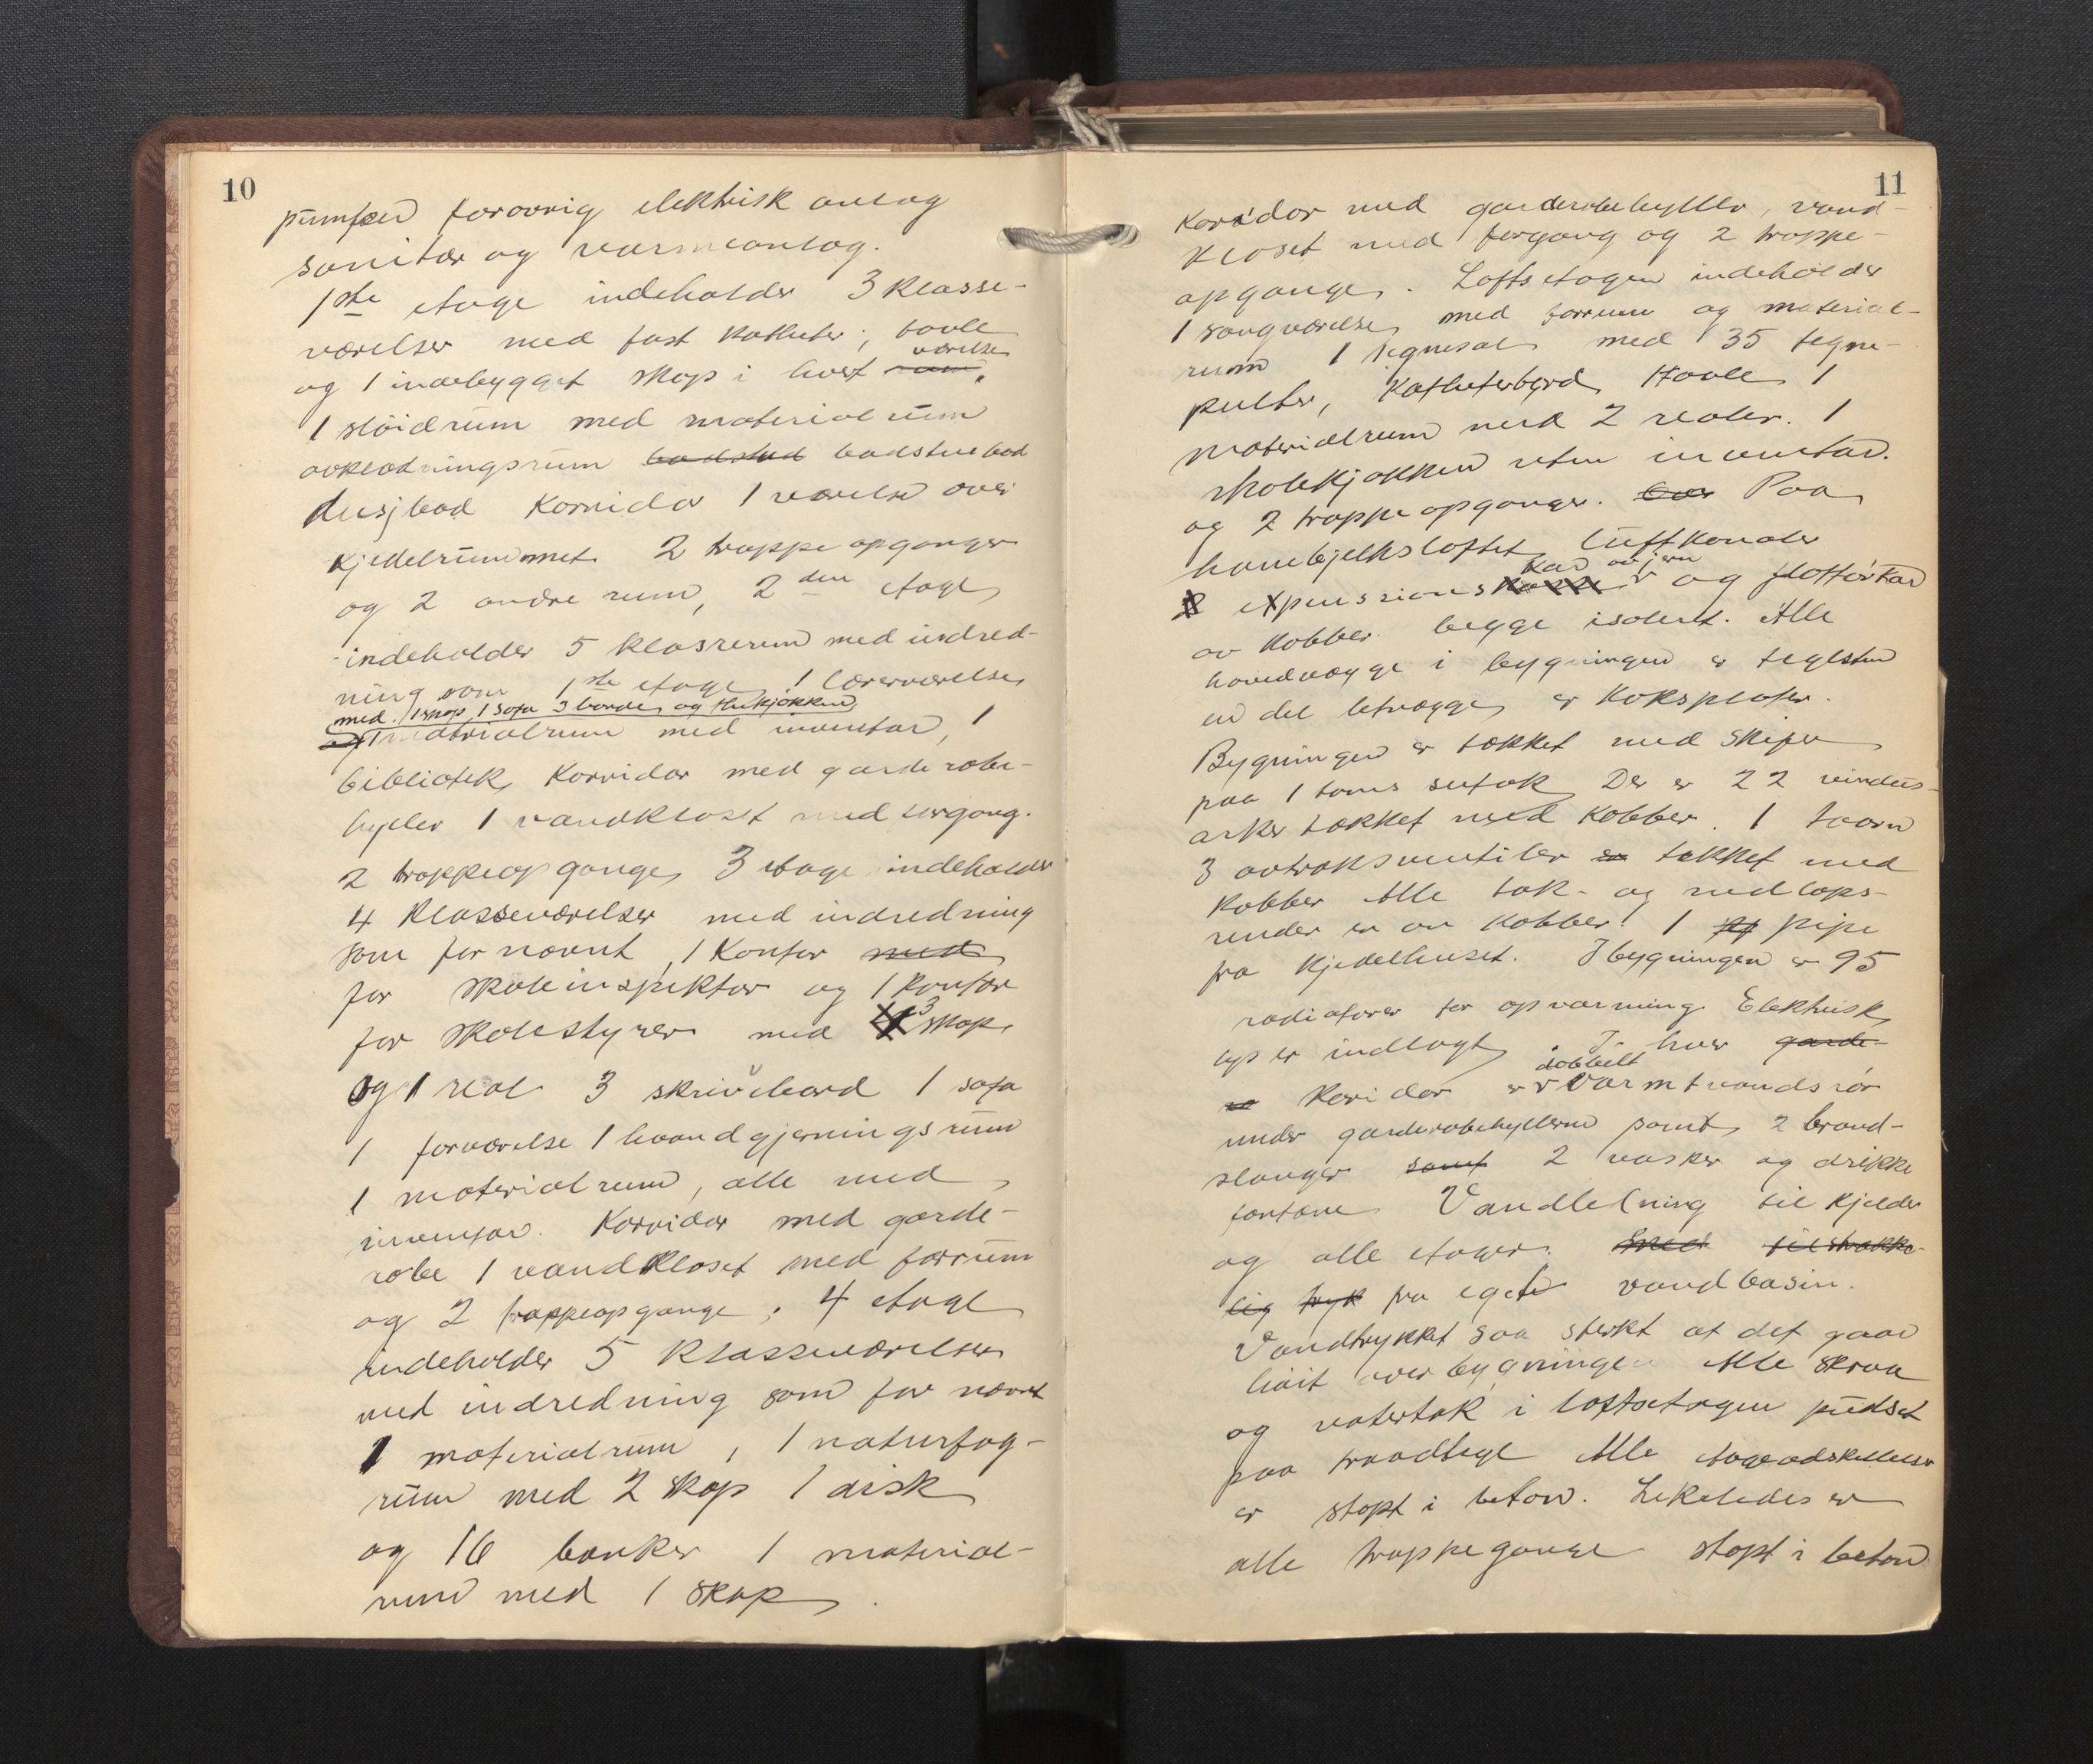 10
pumpen forøvrig elektrisk anlæg
sanitær og varmeanlæg.
1ste etage indeholder 3 klasse-
værelser med fast katheter, tavle
værelse
og 1 indebygget skap i hvert rum.
1 sløidrum med materialrum
avklædningsrum badstud badstuebad
dusjbad korridor 1 værelse over
kjedelrummet 2 trappeopganger
og 2 andre rum, 2den etage
indeholder 5 klasserum med indred-
ning som 1ste etage 1 læreværelse
med 1 skap, 1 sofa 3 borde og thekjøkken
og 1 materialrum med inventar, 1
bibliotek, korridor med garderobe-
hyller 1 vandkloset med forgang.
2 trappeopgange, 3 etage indeholder
4 klasseværelser med indredning
som før nævnt, 1 kontor med
for skoleinspektør og 1 kontor
for skolestyrer med 3 skap,
og 1 reol 3 skrivebord 1 sofa
1 forværelse 1 haandgjerningsrum
1 materialrum, alle med
inventar. Korridor med garde-
robe 1 vandkloset med forrum
og 2 trappeopgange, 4 etage
indeholder 5 klasseværelser
med indredning som før nævnt
1 materialrum, 1 naturfag-
rum med 2 skap 1 disk
og 16 benker 1 material-
rum med 1 skap.
11
Koridor med garderobehyller, vand-
kloset med forgang og 2 trappe-
opgange. Loftsetagen indeholder
1 sangværelse, med forrum og material-
rum 1 tegnesal med 35 tegne-
pulter, Katheterbord, tavle, 1
materialrum med 2 reoler. 1
skolekjøkken uten inventar.
og 2 trappeopganger. Paa
hanebjelksloftet luftkanaler
kar av jern
expensions og flottørkar
av kobber begge isolert. Alle
hovedvægge i bygningen er teglsten
en del letvægge er koksplater.
Bygningen er tækket med skifer
paa 1 toms sutak Der er 22 vindus-
arker tækket med kobber. 1 taarn
3 avtræksventiler er tækket med
kobber Alle tak- og nedløps-
render er av kobber. 1 pipe
fra kjedelhuset. I bygningen er 95
radiatorer for opvarming. Elektrisk
lys er indlagt. I hver garde-
dobbelt
koridor er varmtvandsrør
under garderobehyllerne samt 2 brand-
slanger samt 2 vasker og drikke
fontæne Vandledning til kjelder
og alle etager. Med tilstrække-
lig tryk fra eget vandbasin.
Vandtrykket saa sterkt at det gaar
høit over bygningen Alle skraa
og vatertak i loftsetagen pudset
paa traadtegl Alle etageadskillelser
er støpt i beton. Likeledes er
alle trappegange støpt i beton